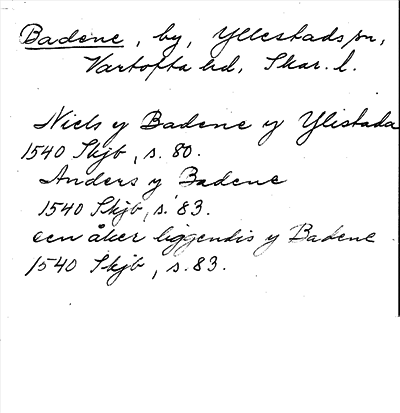 Badene, by, Yllestads sn,
Vartofta hd, Skar. l.
Niels y Badene y Ylistada
1540 Skjb, s. 80.
Anders y Badene
1540 Skjb, s. 83.
een åker liggendis y Badene
1540 Skjb, s. 83.